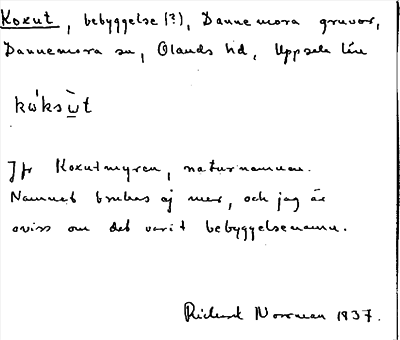 Koxut, bebyggelse (?), Dannemora gruvor,
Dannemora sn, Olands hd, Uppsala län
kὼksὼt
Jfr Koxutmyren, naturnamnen.
Namnet brukas ej mer, och jag är
oviss om det varit bebyggelsenamn.
Richard Norrman 1937.